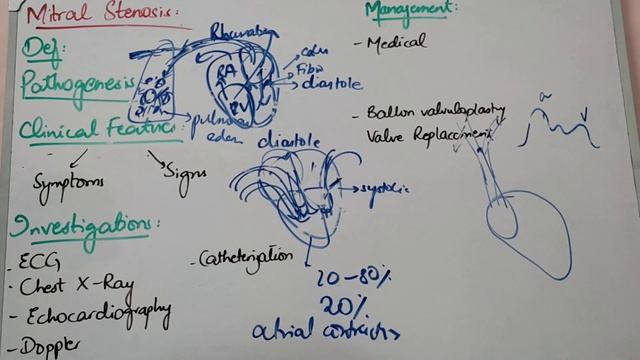 Mitral Stenosis:
Def:
Pathogenesis
Clinical Feature:
Symptoms
Signs
Investigations:
- ECG
- Chest X-Ray
- Echocardiography
- Doppler
RA
RV
Fibro
diastole
diastole
systolic
- Catheterization
20-80%
20%
atrial
Management:
- Medical
- Ballon valvuloplasty
Valve Replacement
a
v